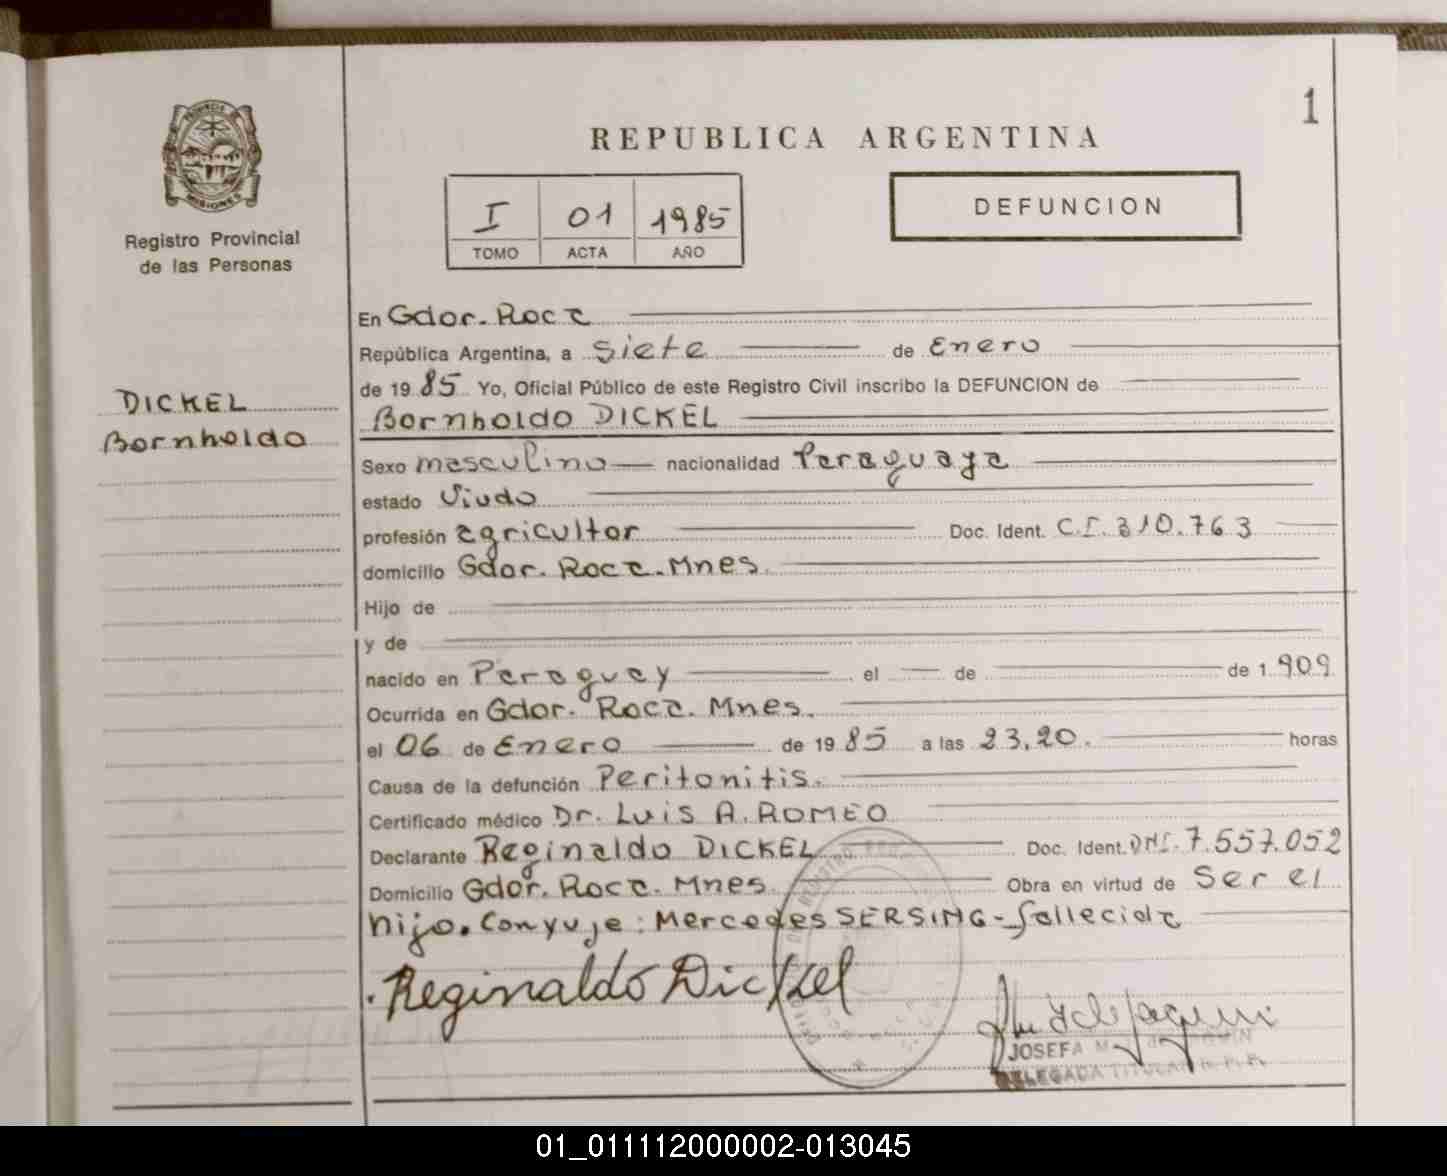 1
REPUBLICA ARGENTINA
PROVINCIA DE
MISIONES
Registro Provincial
de las Personas
I 01 1985
TOMO ACTA AÑO
DEFUNCION
DICKEL
Bornholdo
En Gdor. Roca
República Argentina, a siete de Enero
de 1985 Yo, Oficial Público de este Registro Civil inscribo la DEFUNCION de
Bornholdo DICKEL
Sexo masculino nacionalidad Paraguaya
estado Viudo
profesión agricultor Doc. Ident. C.I. 310.763
domicilio Gdor. Roca. Mnes.
Hijo de
y de
nacido en Paraguay el de de 1.909
Ocurrida en Gdor. Roca. Mnes.
el 06 de Enero de 1985 a las 23,20. horas
Causa de la defunción Peritonitis.
Certificado médico Dr. Luis A. ROMEO
Declarante Reginaldo DICKEL Doc. Ident. DNI. 7.557.052
Domicilio Gdor. Roca. Mnes. Obra en virtud de Ser el
hijo. Conyuje: Mercedes SERSING - fallecida
Reginaldo Dickel
JOSEFA M.
DELEGADA TITULAR R. P. P.
01_011112000002-013045